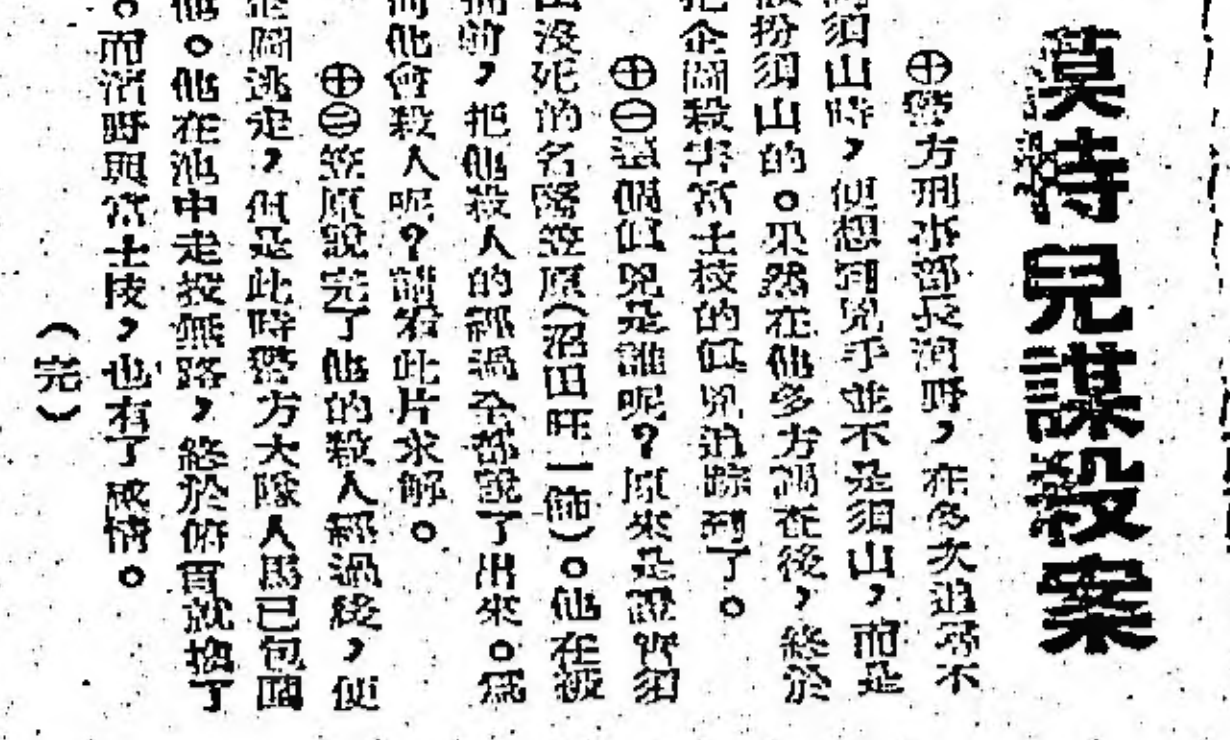 莫特兒謀殺案
⊕警方刑事部長濱野,在多次追尋不
須山時,便想到兇手並不是須山,而是
扮須山的。果然在他多方調查後,終於
把企圖殺害富士枝的真兇追踪到了。
⊕㊀這個真兇是誰呢?原來是證實須
山沒死的名醫笠原(沼田旺一飾)。他在被
捕前,把他殺人的經過全都說了出來。爲
何他會殺人呢?請看此片求解。
⊕㊁笠原說完了他的殺人經過後,便
企圖逃走,但是此時警方大隊人馬已包圍
他。他在池中走投無路,終於俯首就擒了
。而濱野與富士枝,也有了感情。
(完)